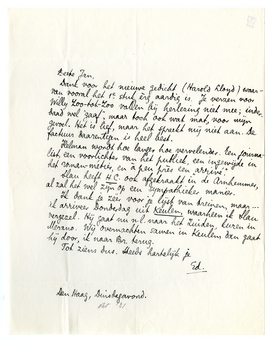 Beste Jan,
Dank voor het nieuwe gedicht (Harold Lloyd) waar-
van vooral het 1e stuk erg aardig is. Je verzen voor
Willy Zoo-tot-Zoo vallen bij herlezing niet mee; inder-
daad wel gaaf; maar toch ook wat mat, voor mijn
gevoel. Het is lief, maar het spreekt mij niet aan. De
factuur daarentegen is heel best.
Helman wordt hoe langer hoe vervelender. Een forma-
list, een voorlichter van het publiek, een ingewijde in
het roman-métier, en à peu près een arrivé!
Slau heeft H.C. ook afgekraakt in de Arnhemmer,
al zal het wel zijn op een sympathieke manier.
Ik dank je zeer voor je lijst van treinen, maar...
ik arriveer Donderdag uit Keulen, waarheen ik Slau
vergezel. Hij gaat nu nl. naar het Zuiden, kuren in
Merano. Wij overnachten samen in Keulen dan gaat
hij door, ik naar Br. terug.
Tot ziens dus. Steeds hartelijk je
Ed.
Den Haag, Dinsdagavond.